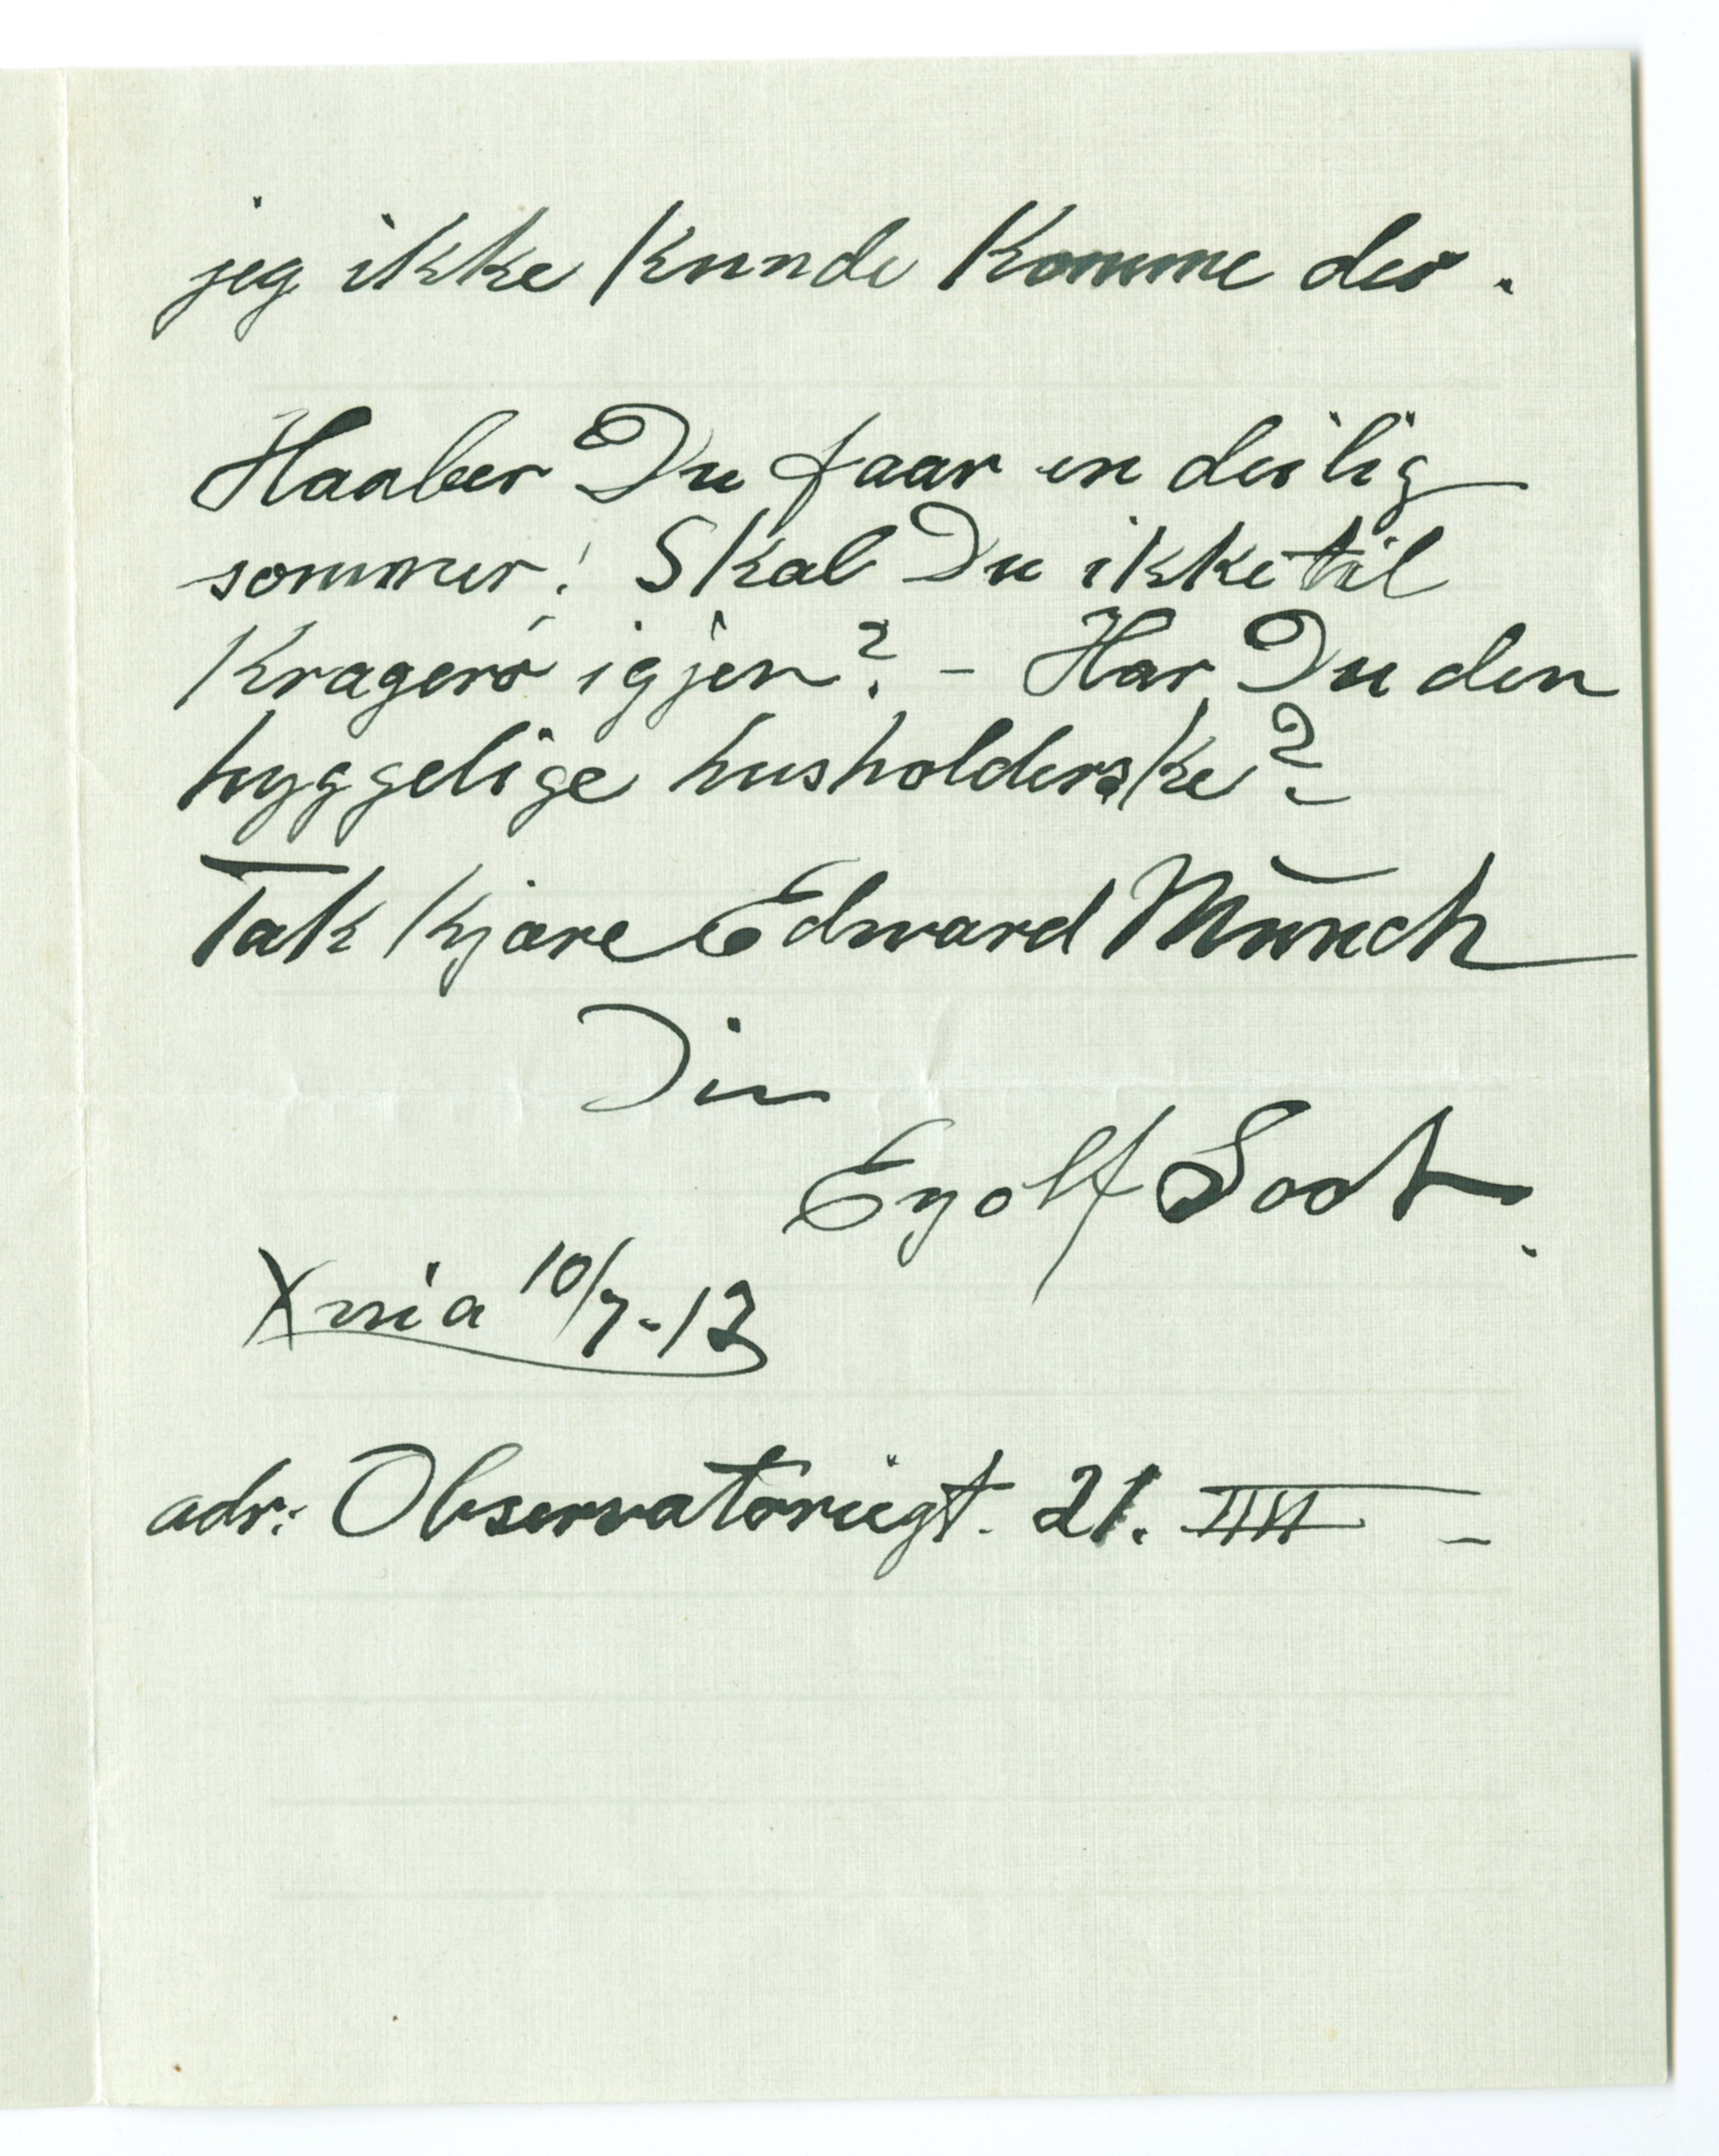 jeg ikke kunde komme der.
Haaber Du faar en deilig
sommer! Skal Du ikke til
Kragerø igjen? – Har Du den
hyggelige husholderske?
Tak kjære Edward Munch
Din
Eyolf Soot.
Xnia 10/7-13
adr: Observatoriegt. 21. III –